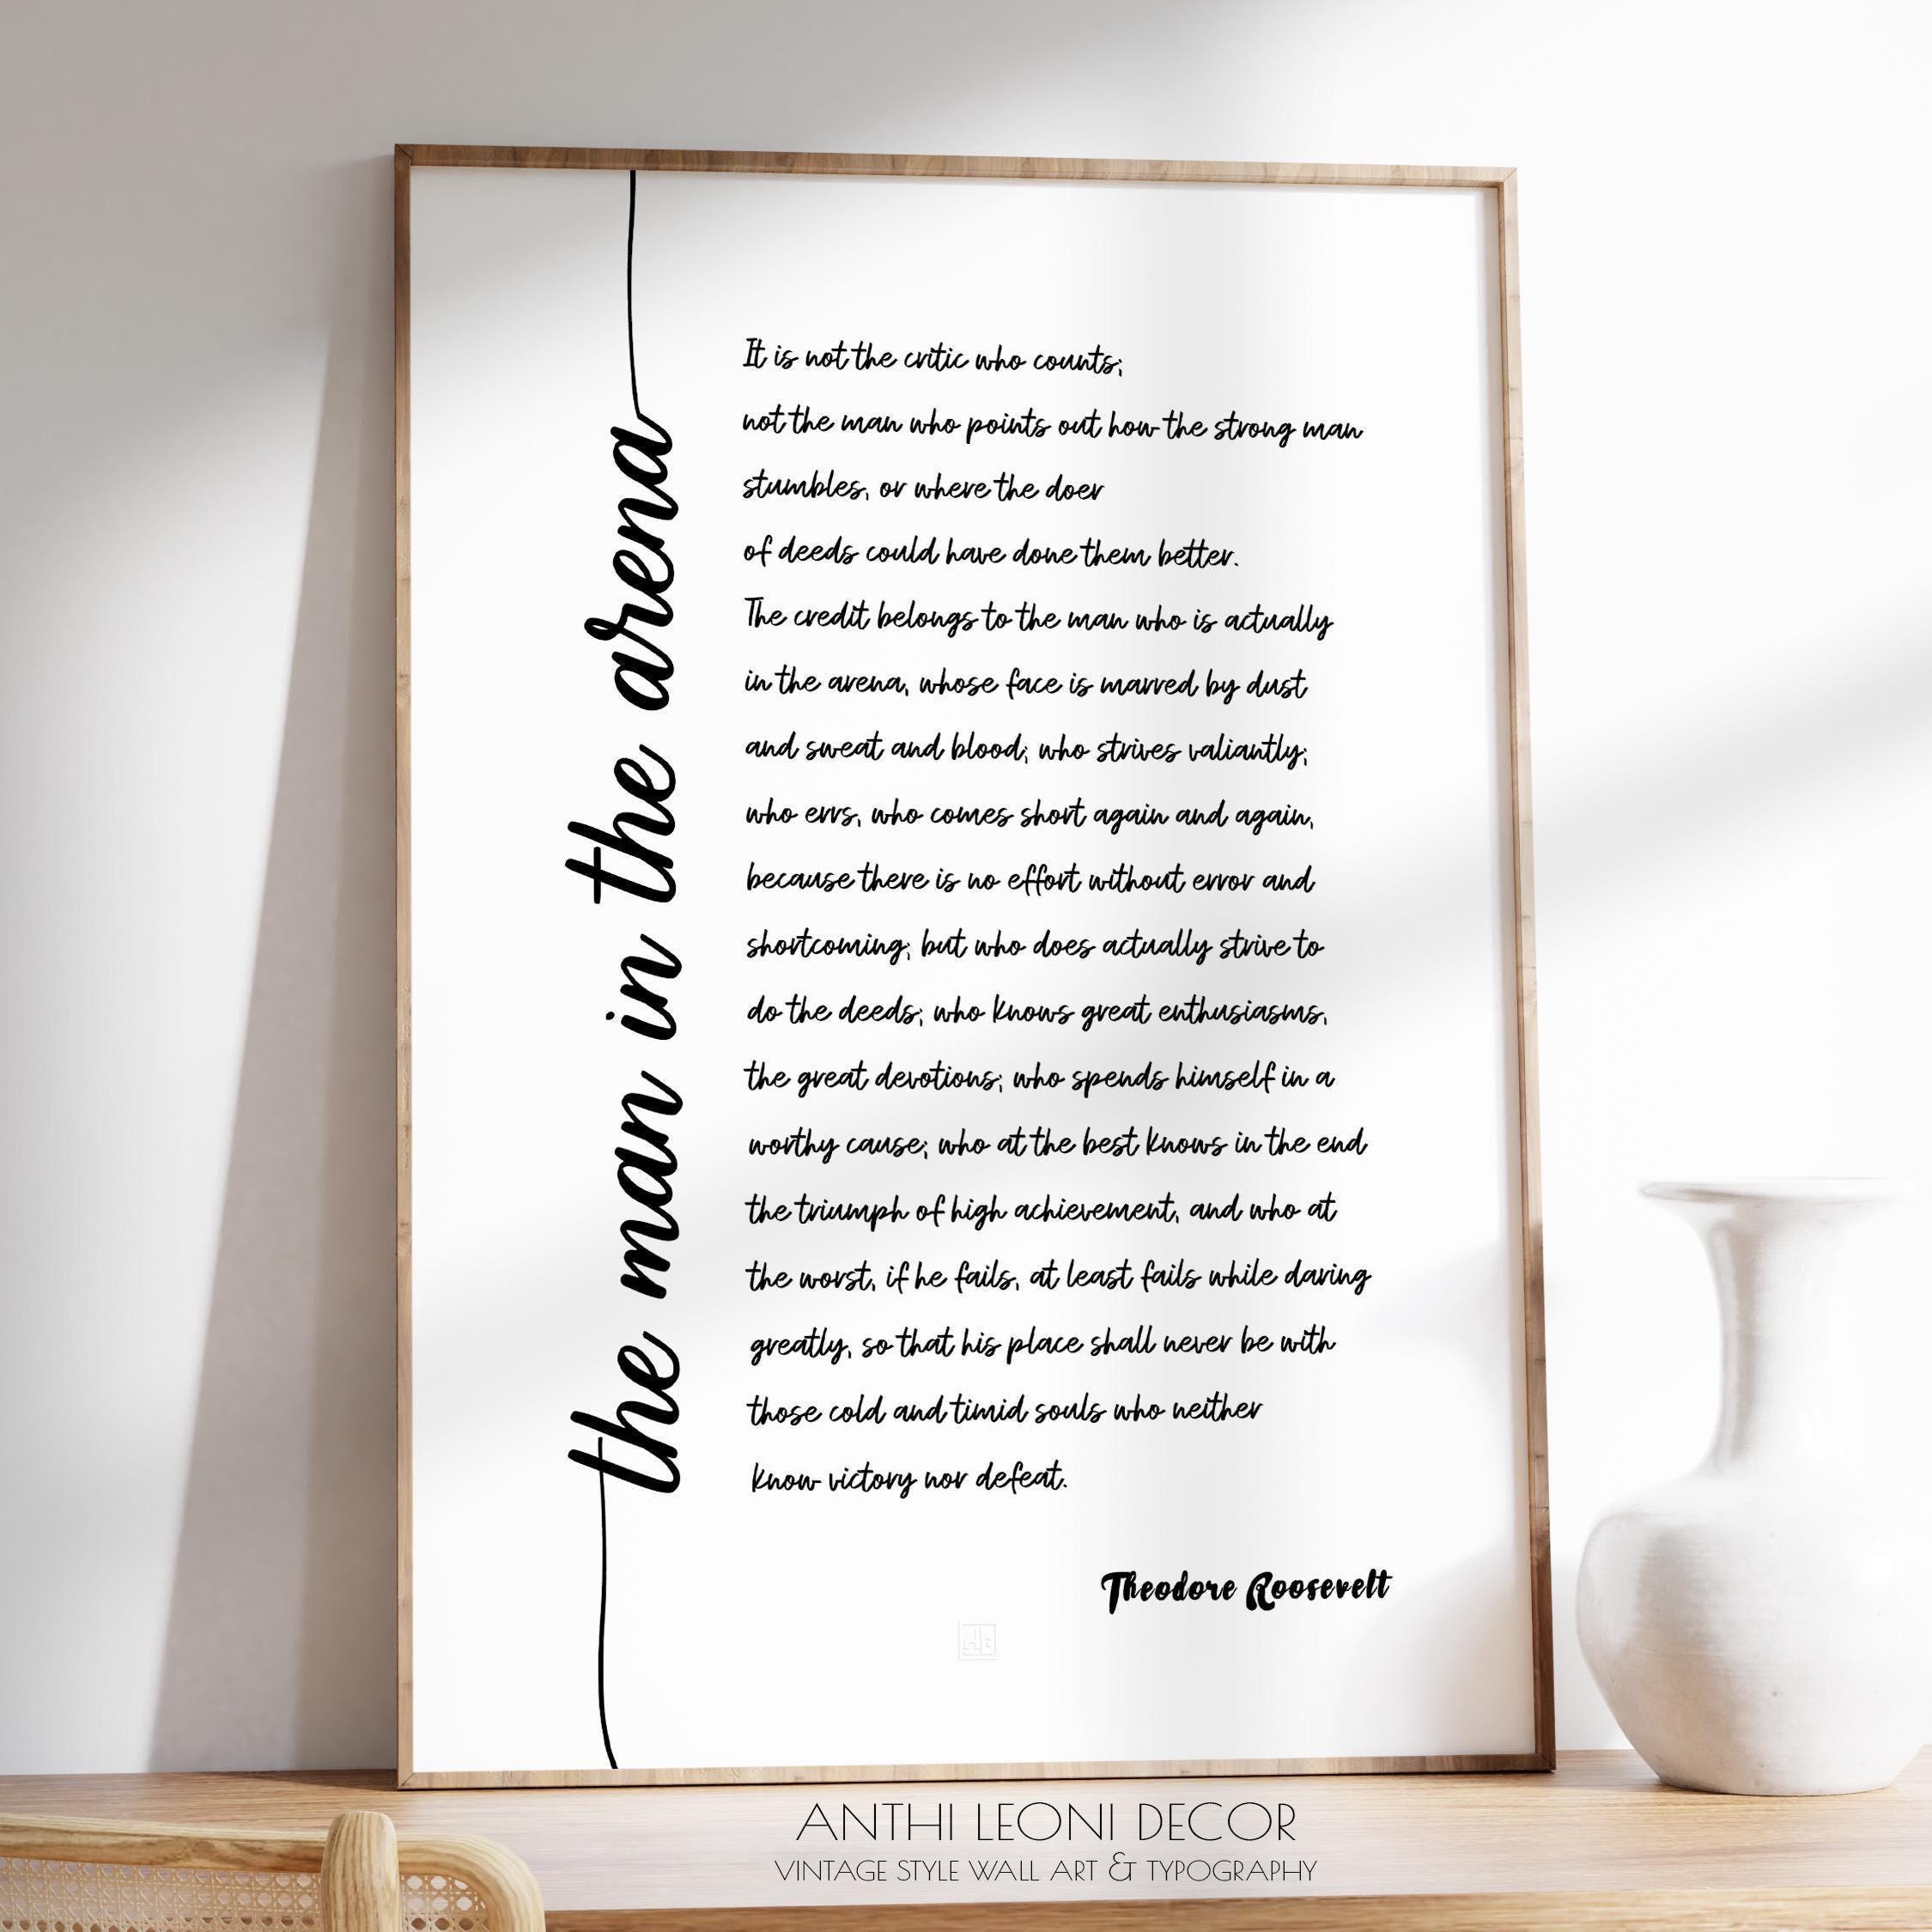 the man in the arena
It is not the critic who counts;
not the man who points out how the strong man
stumbles, or where the doer
of deeds could have done them better.
The credit belongs to the man who is actually
in the arena, whose face is marred by dust
and sweat and blood; who strives valiantly;
who errs, who comes short again and again,
because there is no effort without error and
shortcoming; but who does actually strive to
do the deeds; who knows great enthusiasms,
the great devotions; who spends himself in a
worthy cause; who at the best knows in the end
the triumph of high achievement, and who at
the worst, if he fails, at least fails while daring
greatly, so that his place shall never be with
those cold and timid souls who neither
know victory nor defeat.
Theodore Roosevelt
ANTHI LEONI DECOR
VINTAGE STYLE WALL ART & TYPOGRAPHY